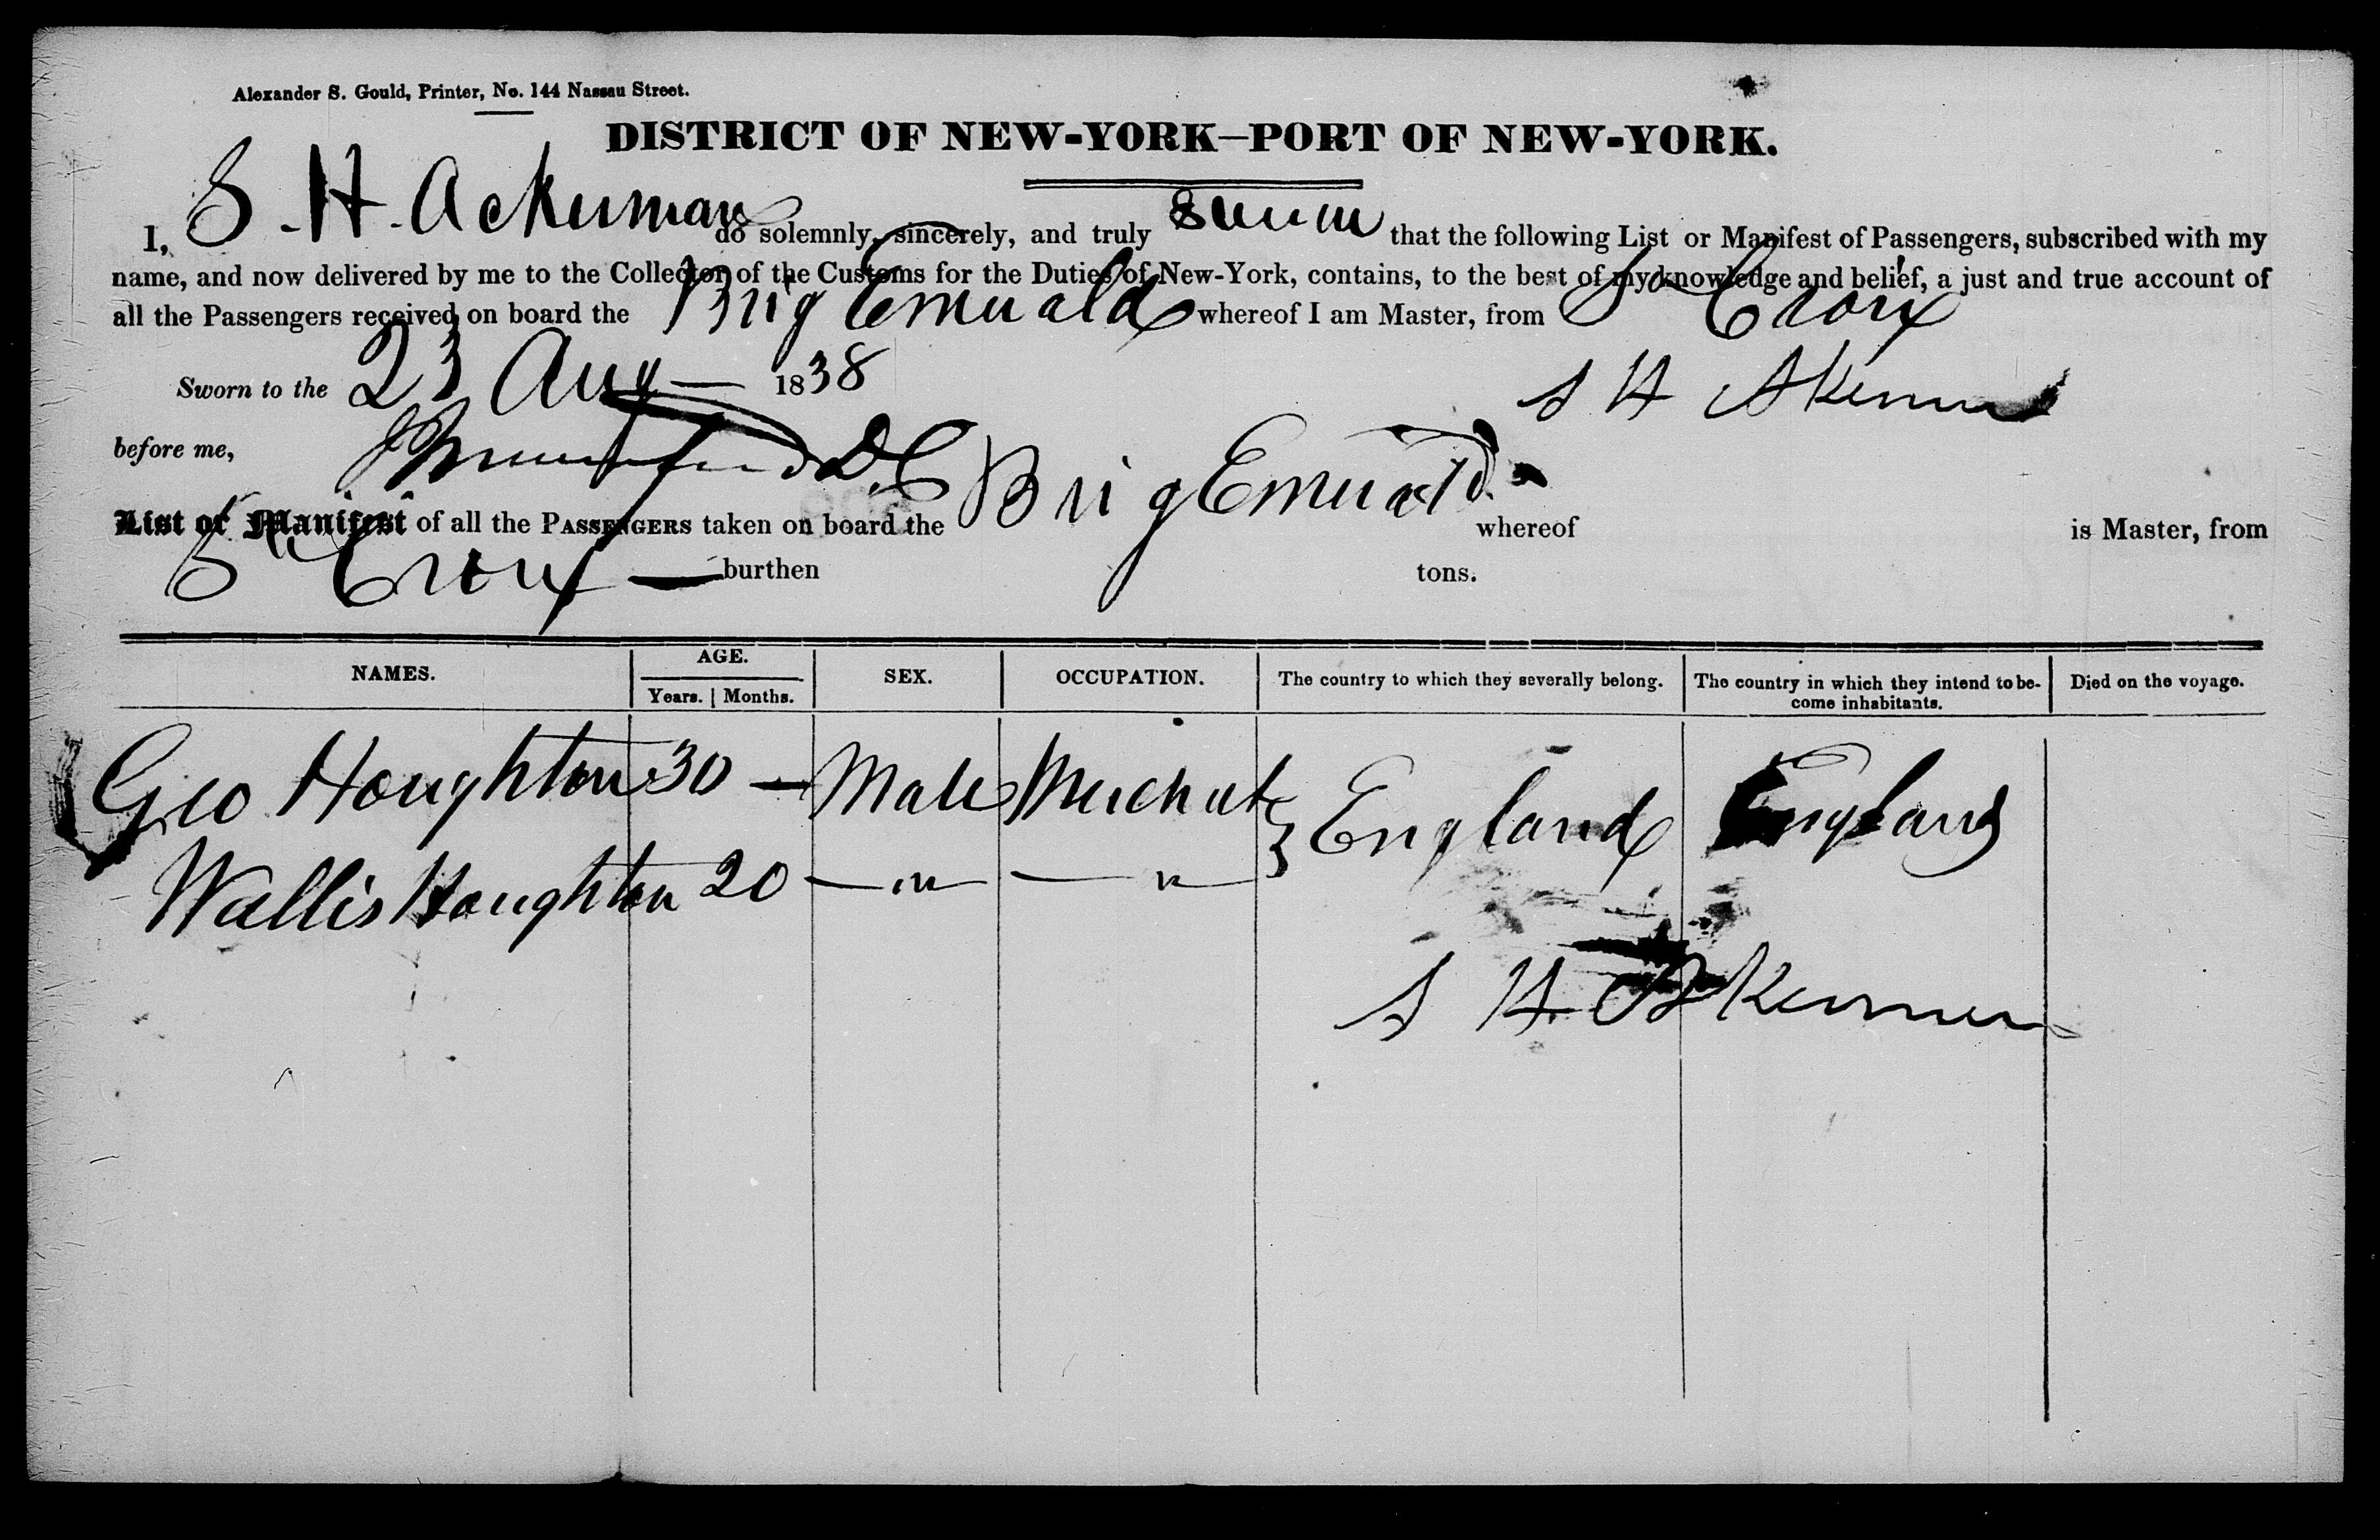 Alexander S. Gould, Printer, No. 144 Nassau Street.
DISTRICT OF NEW-YORK—PORT OF NEW-YORK.
I, S. H. Ackerman do solemnly, sincerely, and truly swear that the following List or Manifest of Passengers, subscribed with my
name, and now delivered by me to the Collector of the Customs for the Duties of New-York, contains, to the best of my knowledge and belief, a just and true account of
all the Passengers received on board the Brig Emerald whereof I am Master, from St Croix
Sworn to the 23 Aug — 1838
S H Akerman
before me, D.C
List or Manifest of all the PASSENGERS taken on board the Brig Emerald whereof is Master, from
St Croix — burthen tons.
NAMES. AGE. Years. Months. SEX. OCCUPATION. The country to which they severally belong. The country in which they intend to become inhabitants. Died on the voyage.
Geo Houghton 30 — Male Merchant England England
Wallis Houghton 20 — " — — " —
S H Akerman